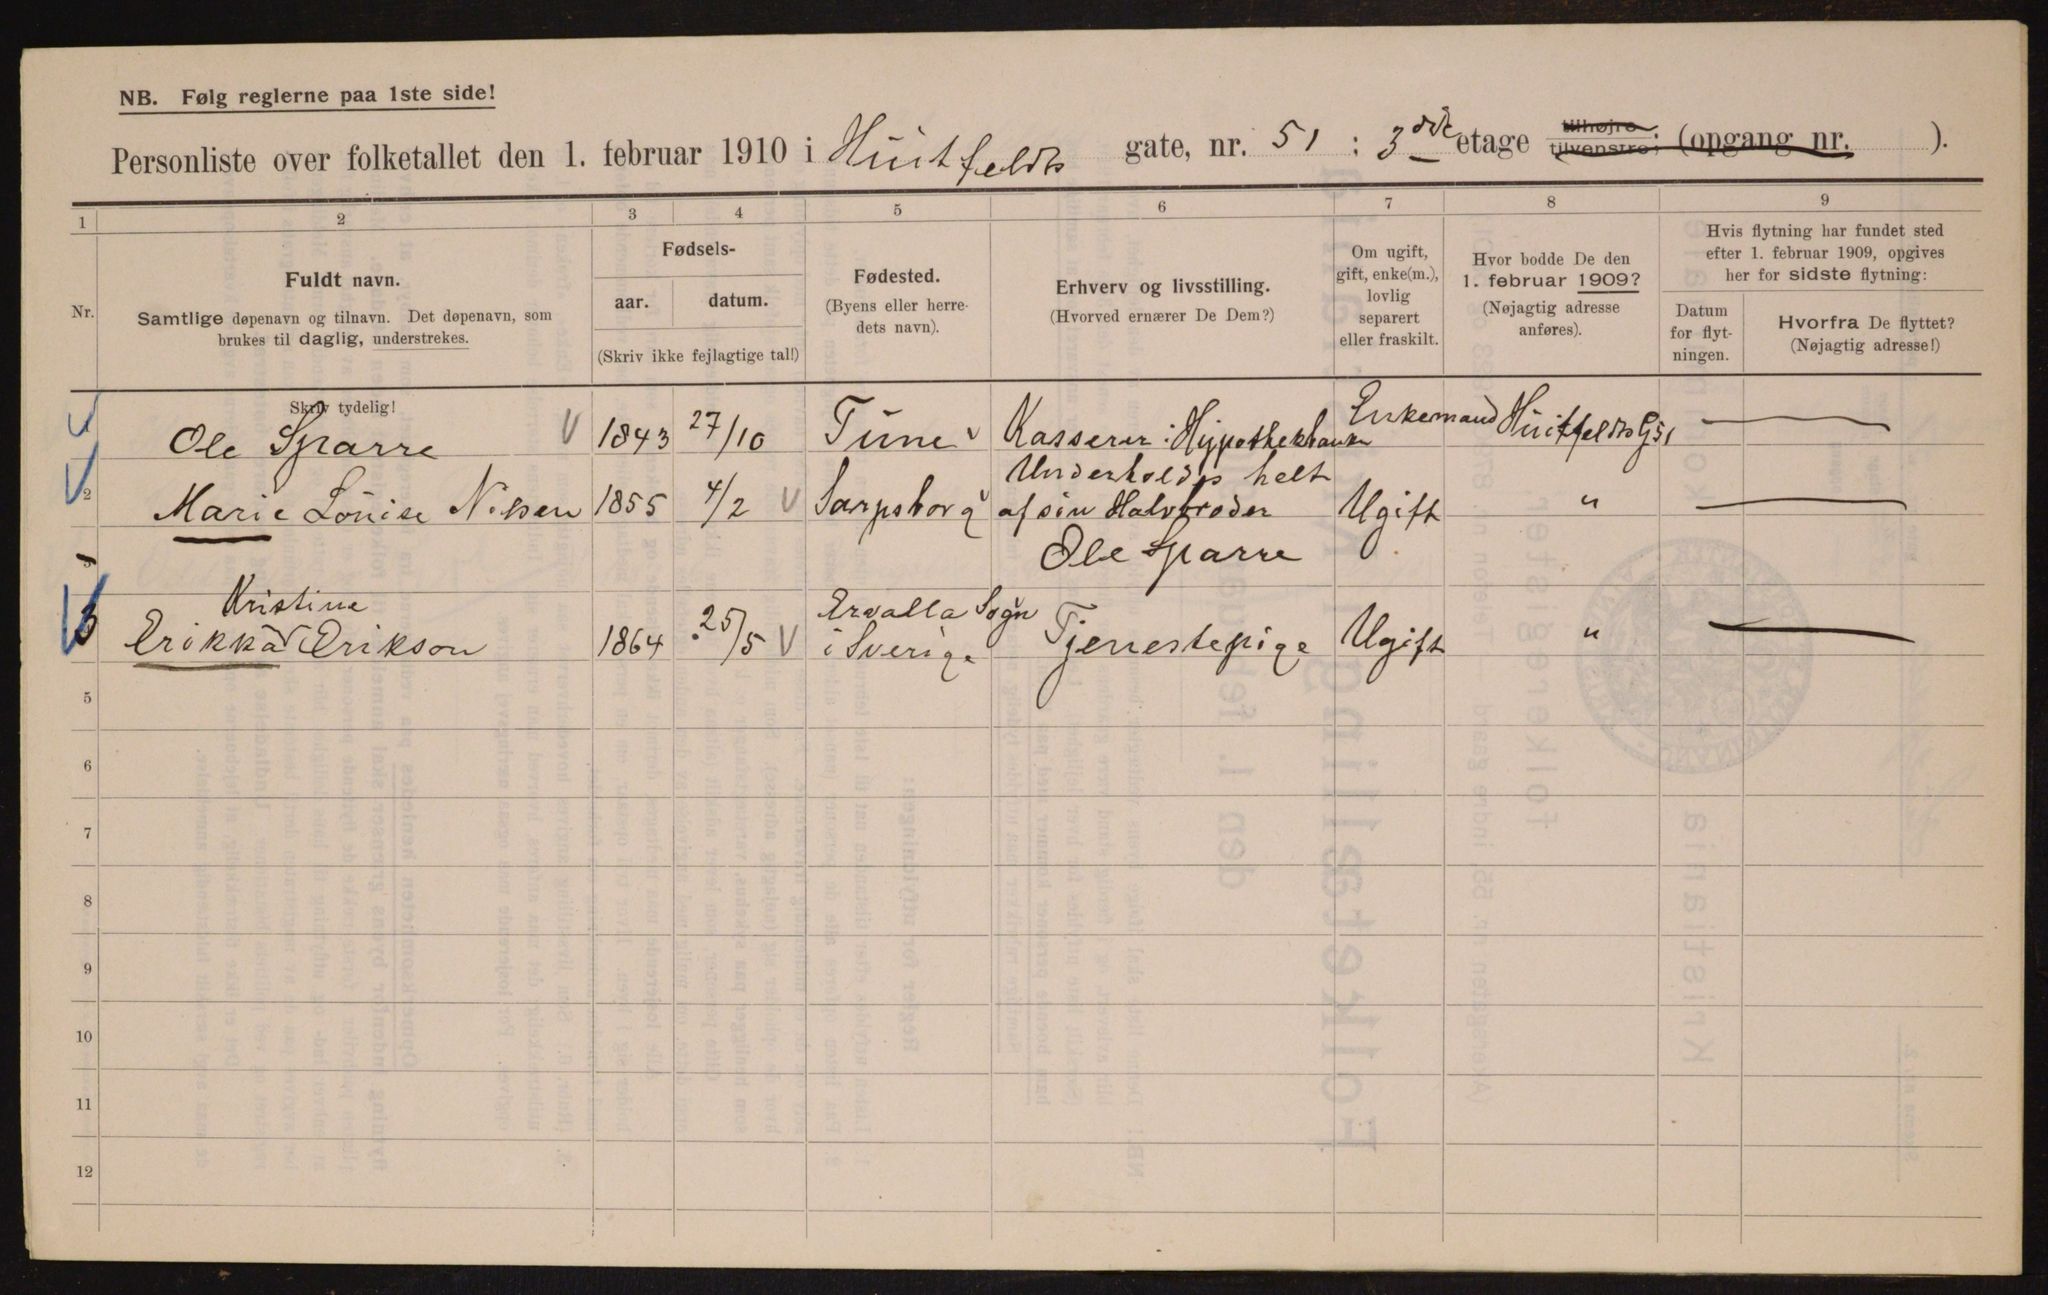 NB. Følg reglerne paa 1ste side!
Personliste over folketallet den 1. februar 1910 i Huitfeldts gate, nr. 51 : 3die etage tilhøjre tilvenstre; (opgang nr. ).
1 2 3 4 5 6 7 8 9
Nr.
Fuldt navn.
Samtlige døpenavn og tilnavn. Det døpenavn, som
brukes til daglig, understrekes.
Fødsels-
aar. datum.
(Skriv ikke fejlagtige tal!)
Fødested.
(Byens eller herre-
dets navn).
Erhverv og livsstilling.
(Hvorved ernærer De Dem?)
Om ugift,
gift, enke(m.),
lovlig
separert
eller fraskilt.
Hvor bodde De den
1. februar 1909?
(Nøjagtig adresse
anføres).
Hvis flytning har fundet sted
efter 1. februar 1909, opgives
her for sidste flytning:
Datum
for flyt-
ningen.
Hvorfra De flyttet?
(Nøjagtig adresse!)
Skriv tydelig!
Ole Sparre 1843 27/10 Tune Kasserer i Hypothekbanken Enkemand Huitfeldts G 51 —
2 Marie Louise Nilsen 1855 4/2 Sarpsborg Underholdes helt
af sin Halvbroder Ugift " —
Ole Sparre
3 Kristine
Erikka Erikson 1864 25/5 Ervalla Sogn
i Sverige Tjenestepige Ugift " —
5
6
7
8
9
10
11
12